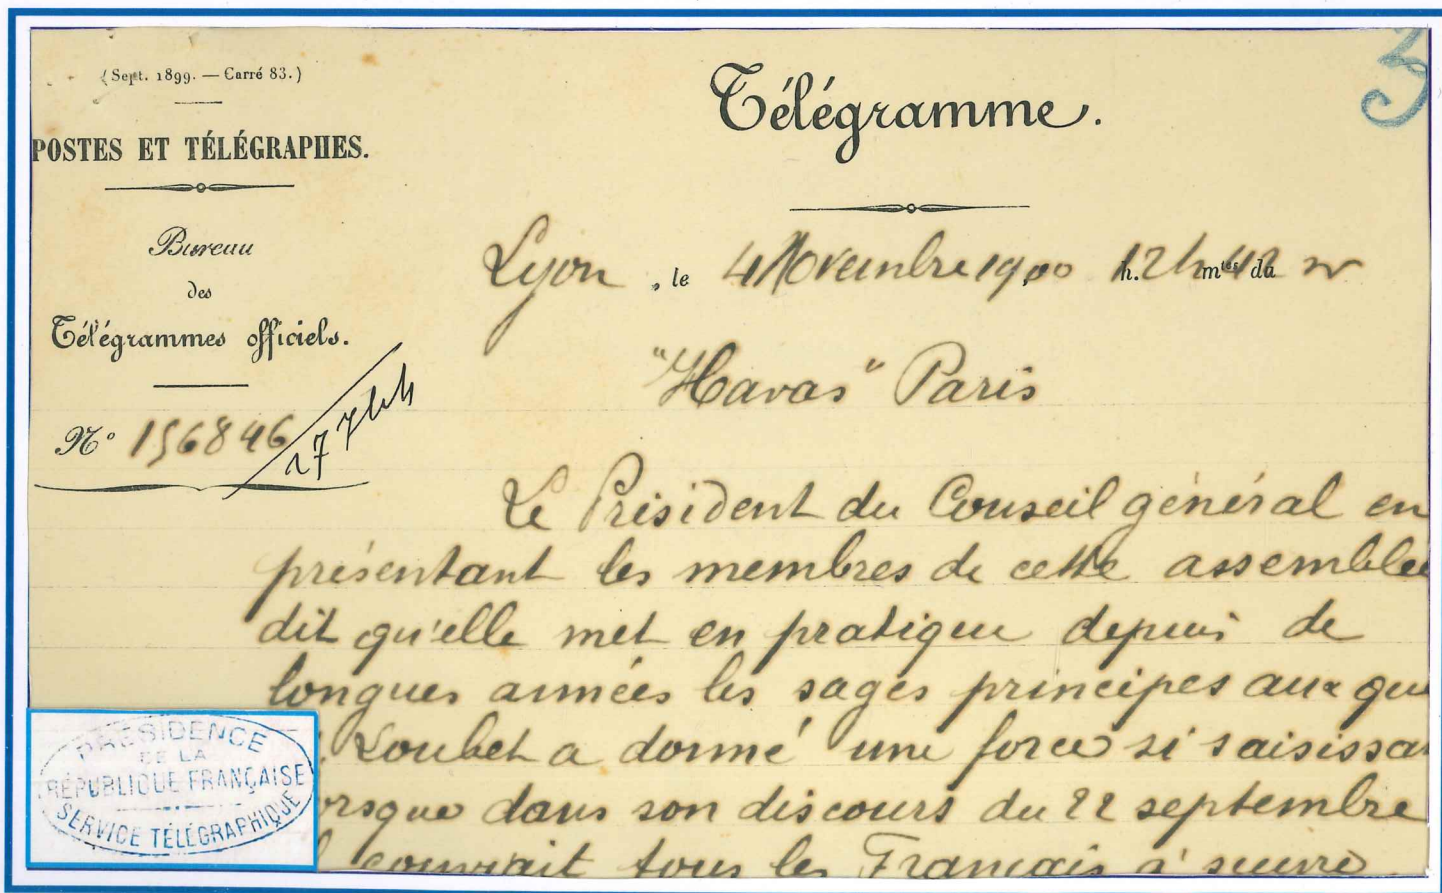 (Sept. 1899. — Carré 83.)
POSTES ET TÉLÉGRAPHES.
Bureau
des
Télégrammes officiels.
N° 156846
Télégramme.
3
Lyon, le 4 Novembre 1900 12 h. 42 mtes du
"Havas" Paris
Le Président du Conseil général en
présentant les membres de cette assemblée
dit qu'elle met en pratique depuis de
longues années les sages principes aux que
Loubet a donné une force si saisissa
orsque dans son discours du 22 septembre
tous les Français à suivre
PRÉSIDENCE
DE LA
RÉPUBLIQUE FRANÇAISE
SERVICE TÉLÉGRAPHIQUE